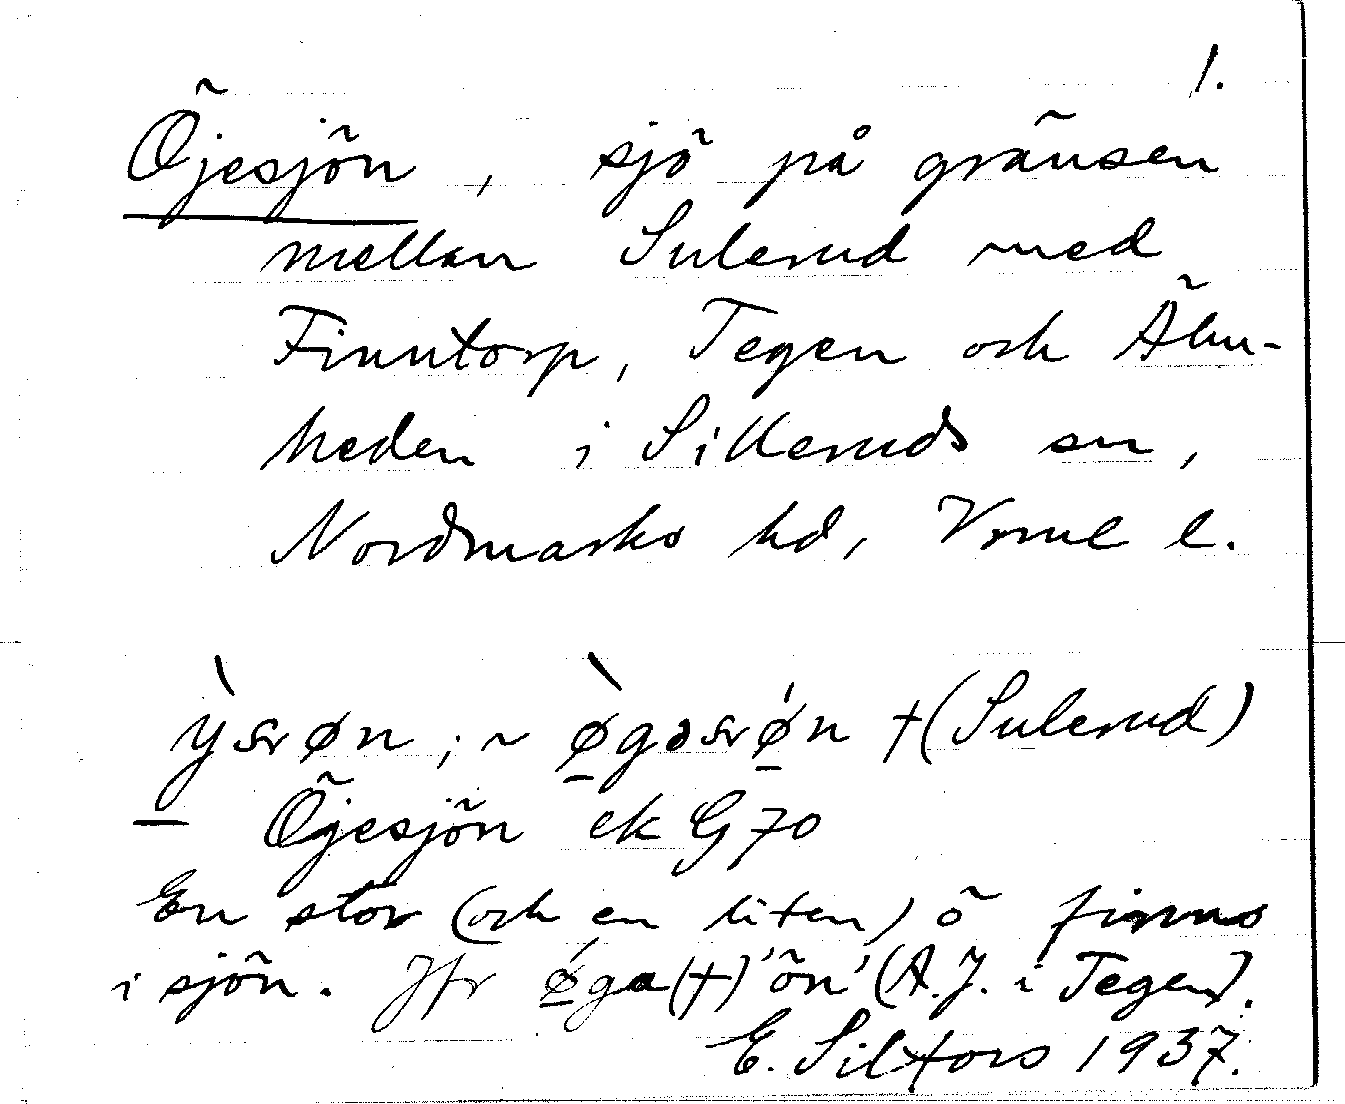 1.
Öjesjön, sjö på gränsen
mellan Sulerud med
Finntorp, Tegen och Älu-
heden i Silleruds sn,
Nordmarks hd, Vrml l.
; ~ †(Sulerud)
— Öjesjön ek G 70
En stor (och en liten) ö finns
i sjön. Jfr øga(†) 'ön' (A.J. i Tegen).
E. Silfors 1937.